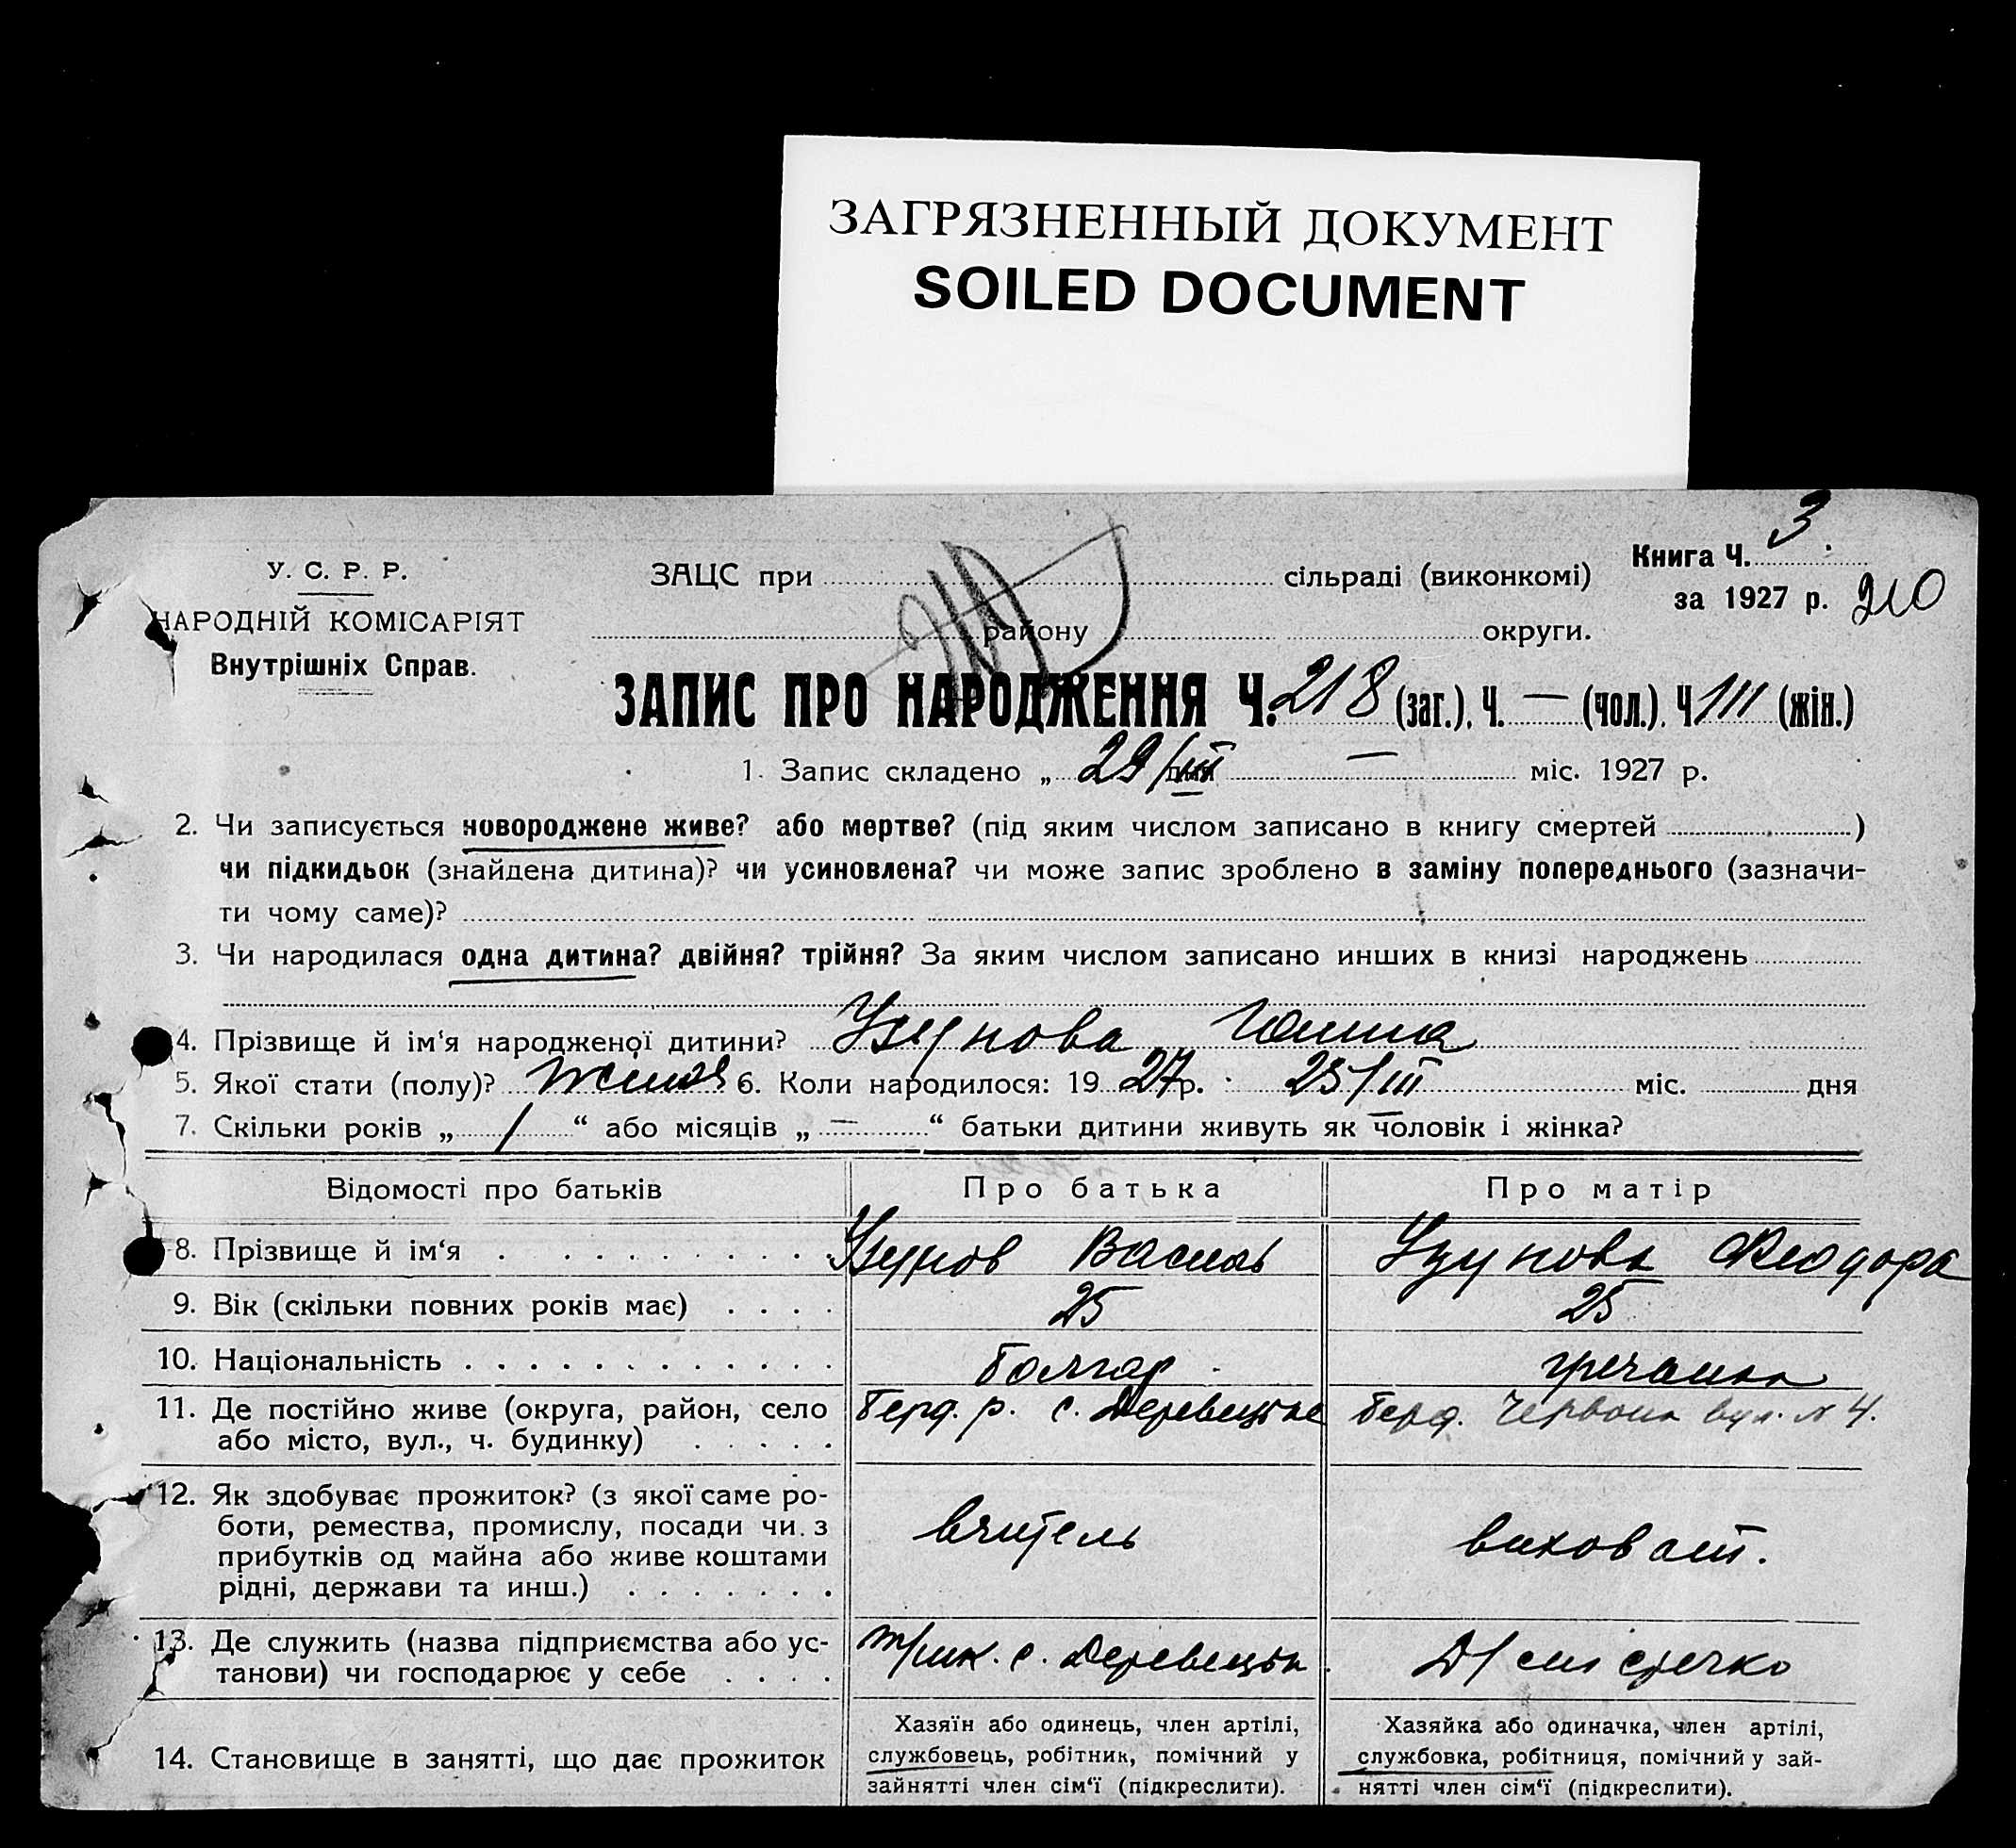 ЗАГРЯЗНЕННЫЙ ДОКУМЕНТ
SOILED DOCUMENT
Книга Ч. 3
У. С. Р. Р.
ЗАЦС при сільраді (виконкомі)
за 1927 р. 210
НАРОДНІЙ КОМІСАРІЯТ
району округи.
Внутрішніх Справ.
ЗАПИС ПРО НАРОДЖЕННЯ Ч. 218 (заг.), Ч. — (чол.), Ч 111 (жін.)
1. Запис складено „ 29/III дня — міс. 1927 р.
2. Чи записується новороджене живе? або мертве? (під яким числом записано в книгу смертей )
чи підкидьок (знайдена дитина)? чи усиновлена? чи може запис зроблено в заміну попереднього (зазначи-
ти чому саме)?
3. Чи народилася одна дитина? двійня? трійня? За яким числом записано инших в книзі народжень
4. Прізвище й ім'я народженої дитини? Узунова
5. Якої стати (полу)? 6. Коли народилося: 19 27 р. 25/III міс. дня
7. Скільки років „ 1 “ або місяців „ — “ батьки дитини живуть як чоловік і жінка?
Відомості про батьків Про батька Про матір
8. Прізвище й ім'я Узунов Василь Узунова Феодора
9. Вік (скільки повних років має) 25 25
10. Національність болгар гречанка
11. Де постійно живе (округа, район, село Берд. р. с. Деревецьке Берд. Червона вул. № 4.
або місто, вул., ч. будинку)
12. Як здобуває прожиток? (з якої саме ро-
боти, ремества, промислу, посади чи з вчитель виховат.
прибутків од майна або живе коштами
рідні, держави та инш.)
13. Де служить (назва підприємства або ус- с. Деревецьк. Д/містечко
танови) чи господарює у себе
14. Становище в занятті, що дає прожиток
Хазяїн або одинець, член артілі,
службовець, робітник, помічний у
зайнятті член сім'ї (підкреслити).
Хазяйка або одиначка, член артілі,
службовка, робітниця, помічний у зай-
нятті член сім'ї (підкреслити).